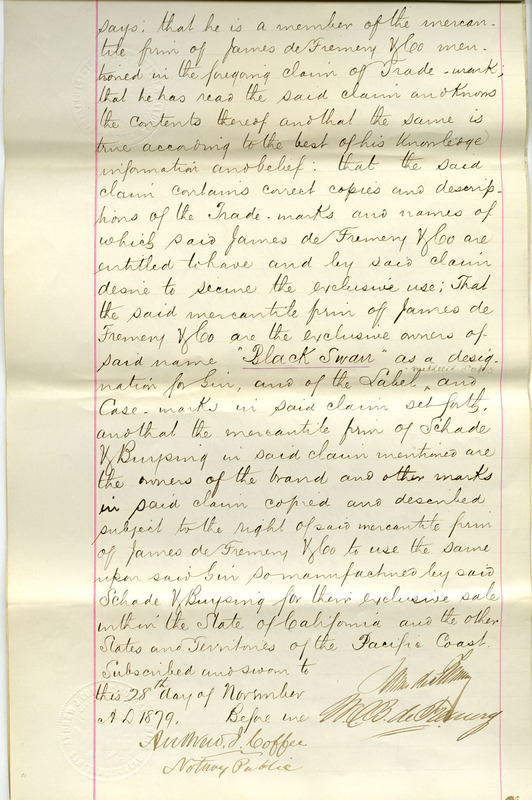 says: that he is a member of the mercan-
tile firm of James de Fremery & Co men-
tioned in the foregoing claim of Trade-mark;
that he has read the said claim and knows
the contents thereof and that the same is
true according to the best of his knowledge
information and belief: that the said
claim contains correct copies and descrip-
tions of the Trade-marks and names of
which said James de Fremery & Co are
entitled to have and by said claim
desire to secure the exclusive use; That
the said mercantile firm of James de
Fremery & Co are the exclusive owners of
said name "Black Swan" as a desig-
nation for Gin, and of the Label, and
Case-marks in said claim set forth,
and that the mercantile firm of Schade
& Buysing in said claim mentioned are
the owners of the brand and other marks
in said claim copied and described
subject to the right of said mercantile firm
of James de Fremery & Co to use the same
upon said Gin so manufactured by said
Schade & Buysing for their exclusive sale
within the State of California and the other
States and Territories of the Pacific Coast.
Subscribed and sworn to
this 28th day of November
A D 1879. Before me
W. B. de Fremery
J. Coffee
Notary Public